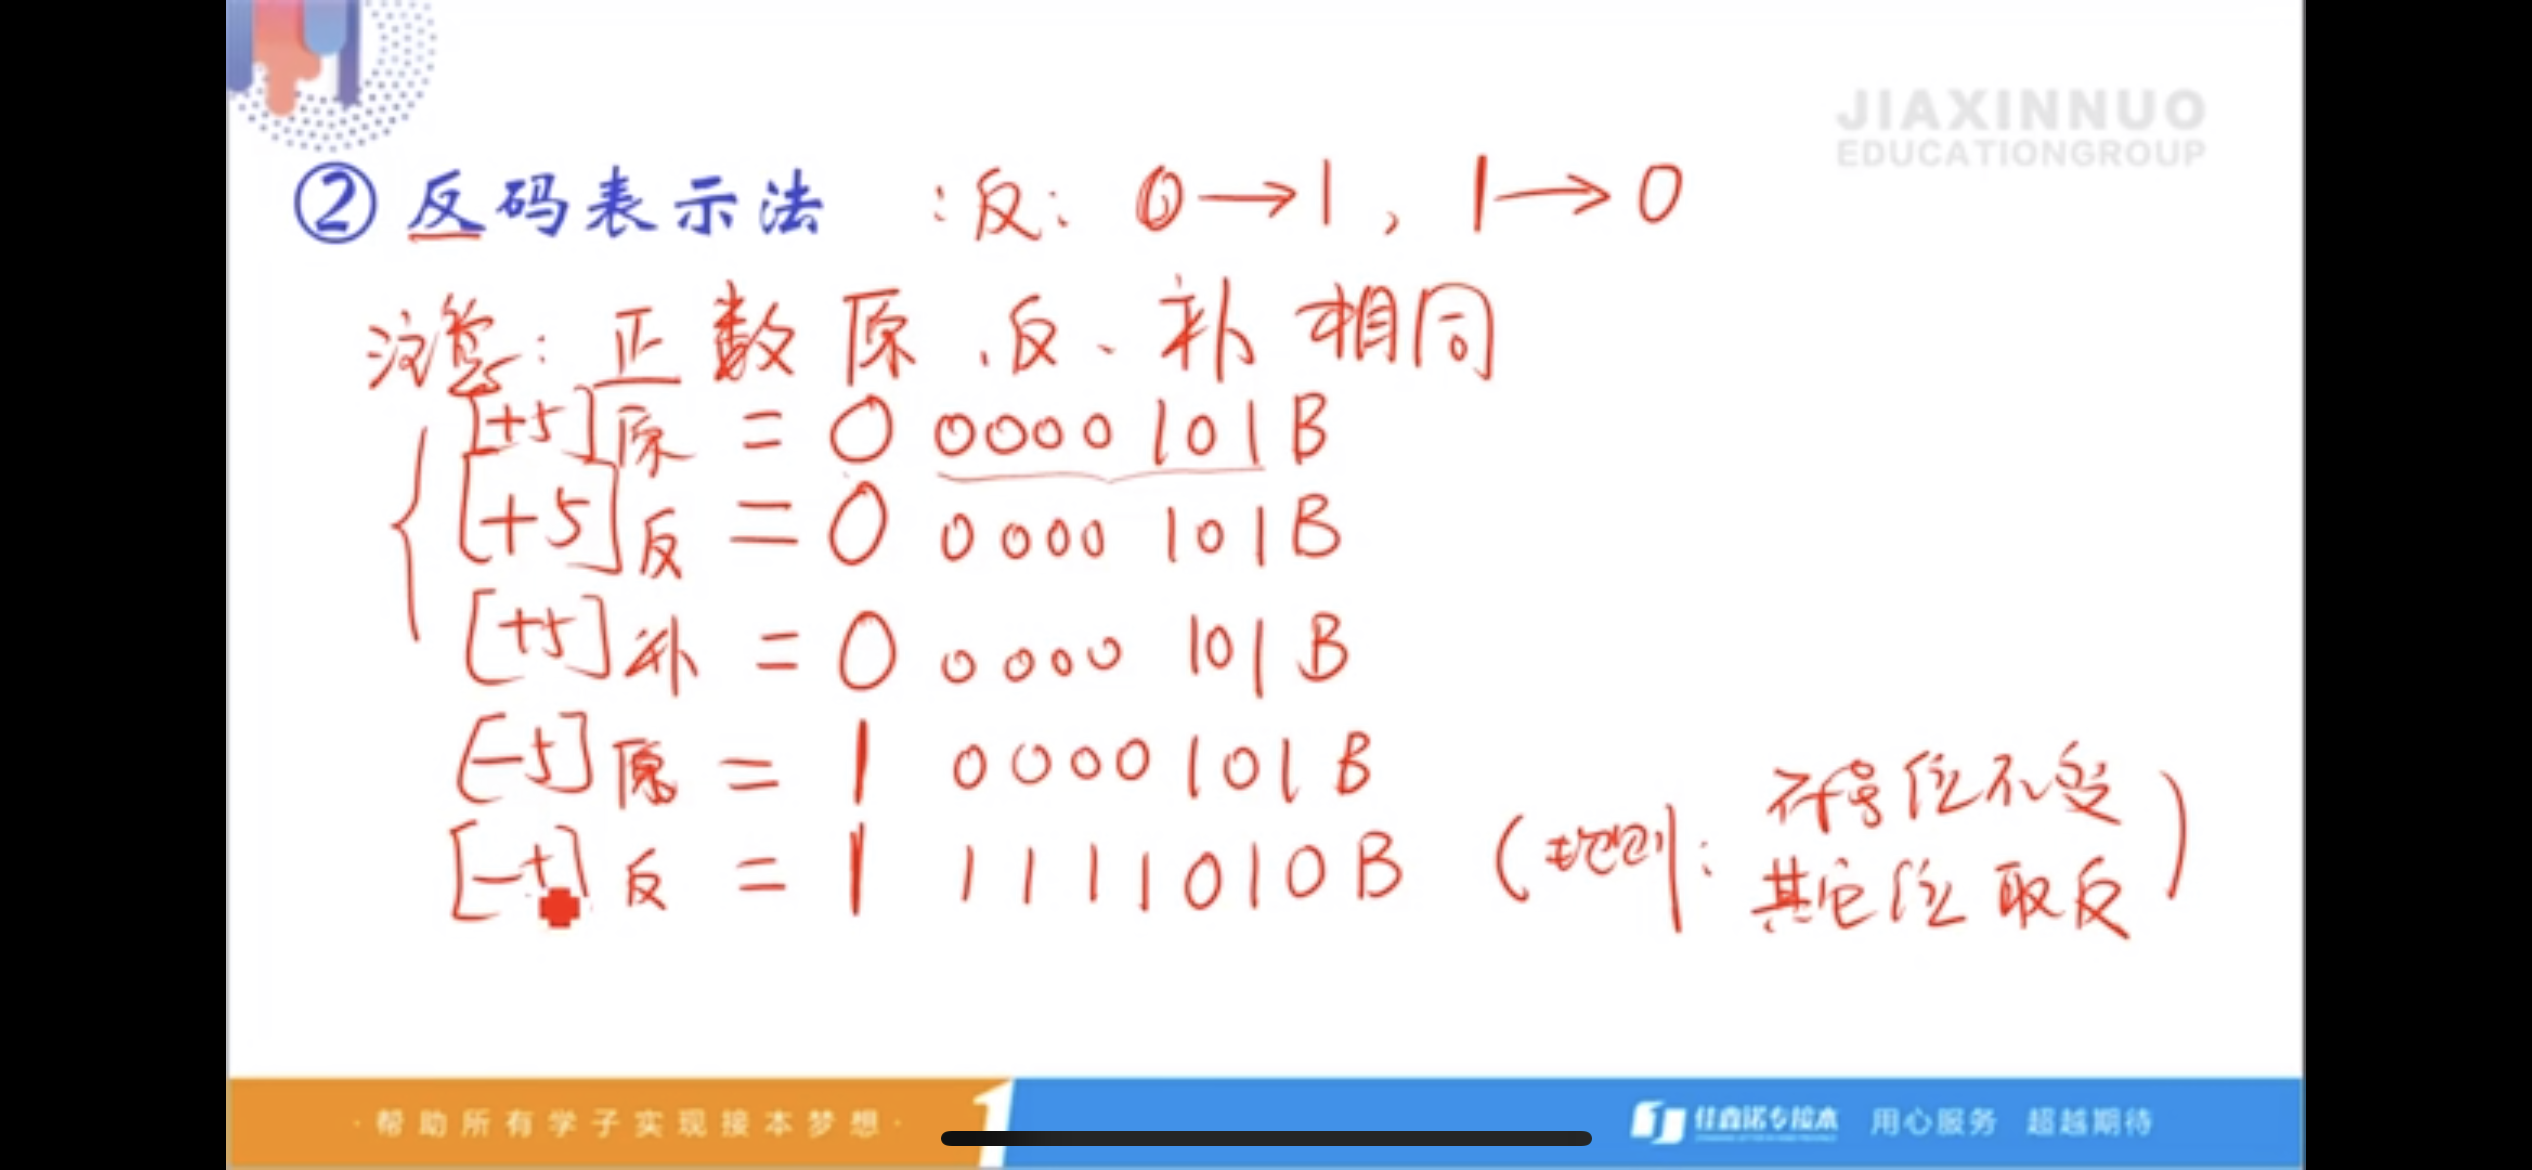 JIAXINNUO
EDUCATIONGROUP
② 反码表示法 :反: 0→1, 1→0
注意: 正数原、反、补相同
[+5]原 = 0 0000101B
[+5]反 = 0 0000101B
[+5]补 = 0 0000101B
[-5]原 = 1 0000101B
[-5]反 = 1 1111010B (规则: 符号位不变
其它位取反)
·帮助所有学子实现接本梦想·
1
佳鑫诺专接本 用心服务 超越期待